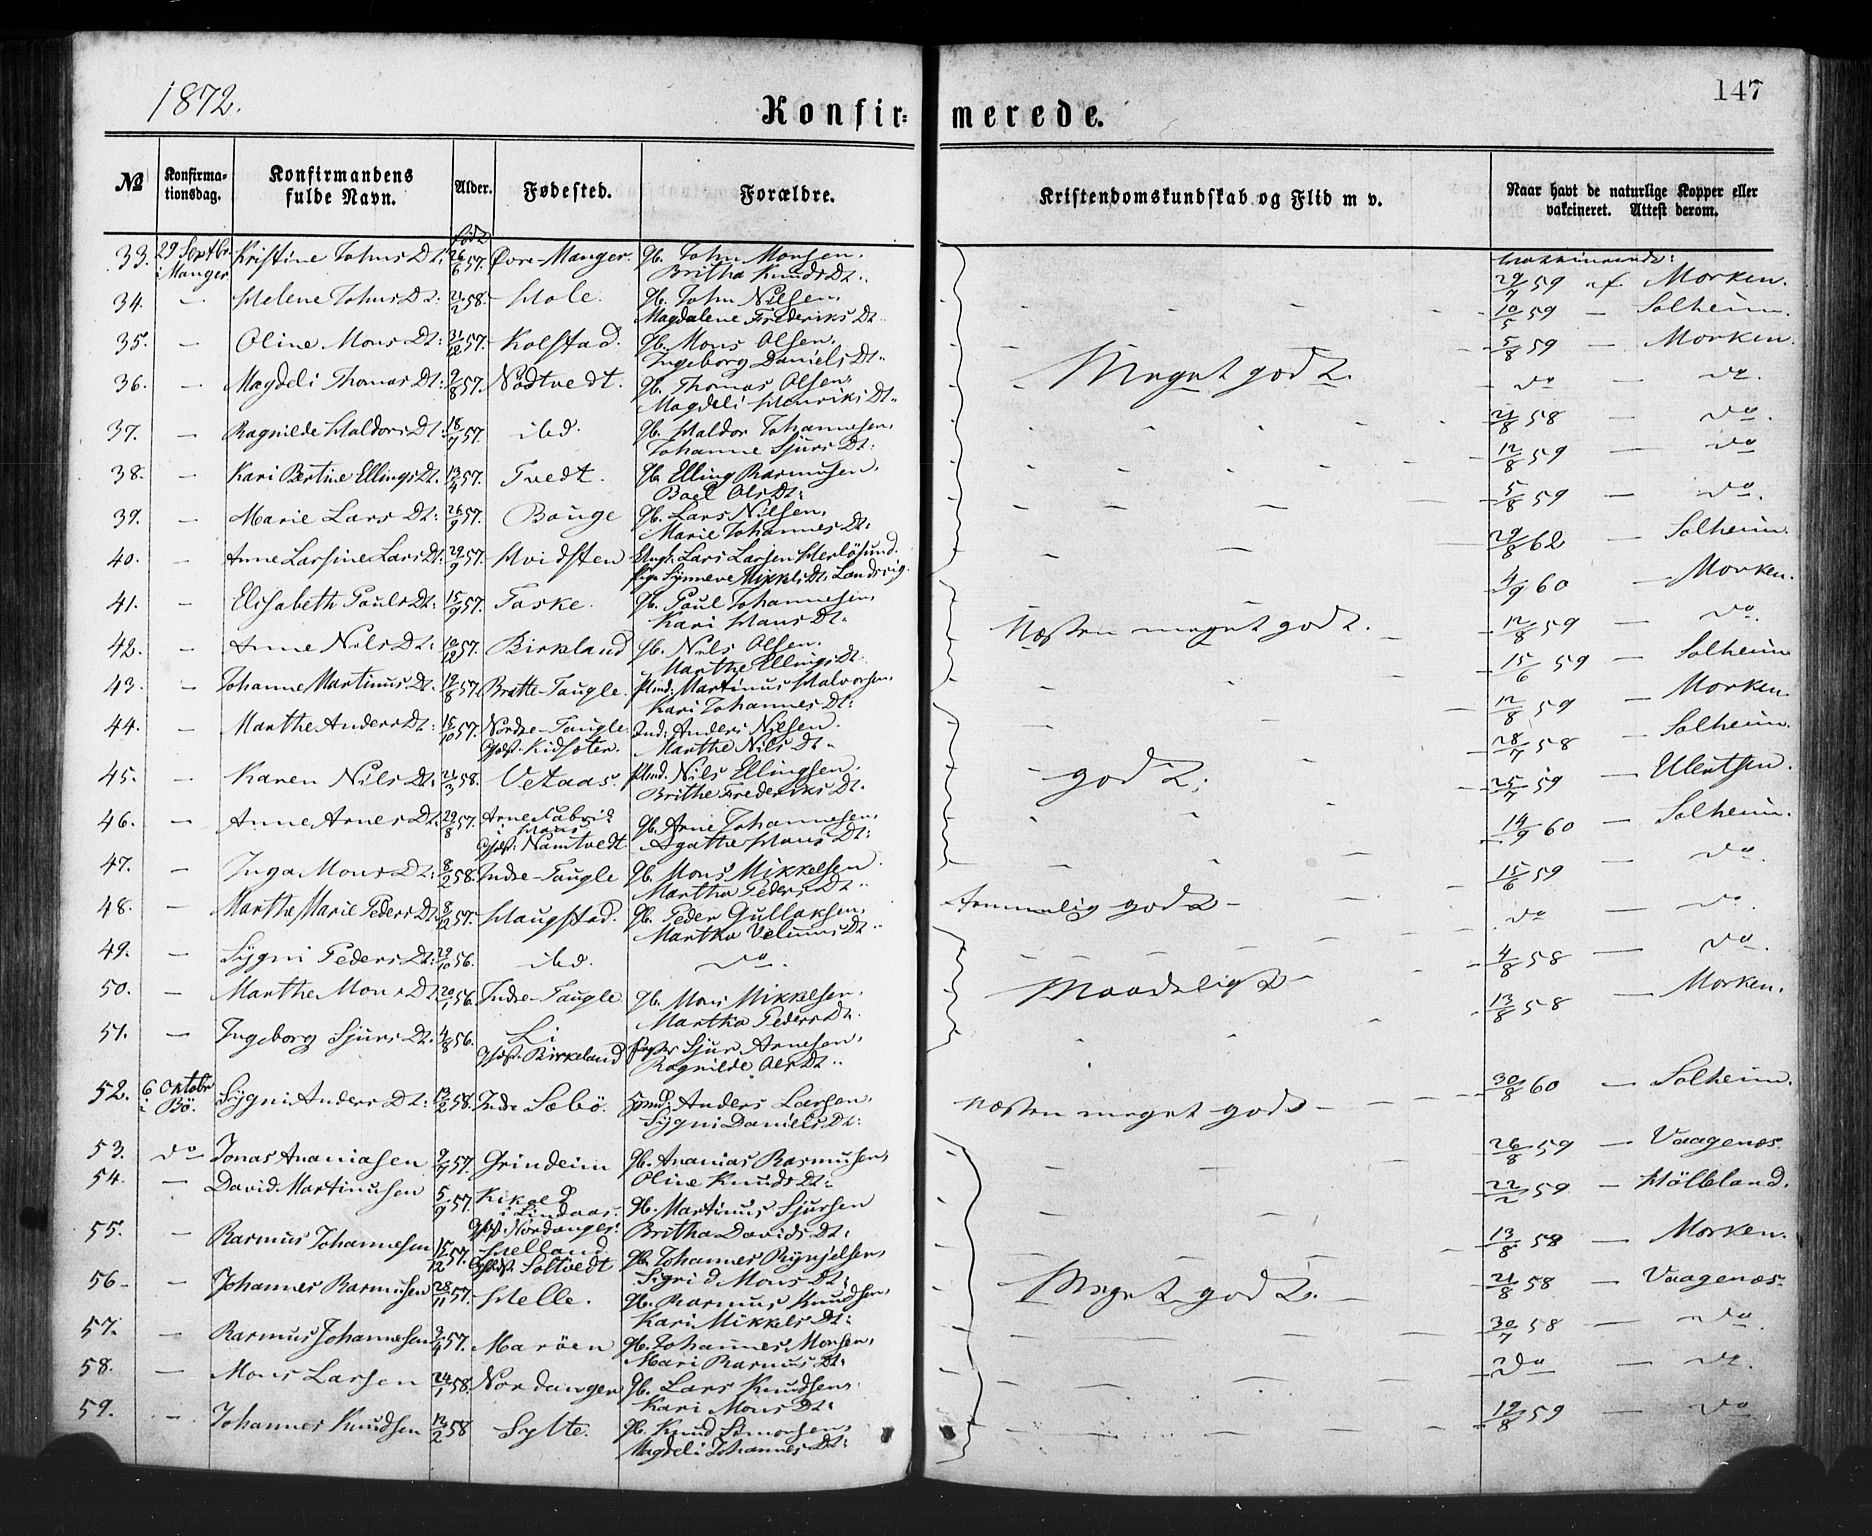 1872.
147
Konfir=merede.
No
Konfirmationsdag.
Konfirmandens fulde Navn.
Alder.
Fødested.
Forældre.
Kristendomskundskab og Flid m v.
Naar havt de naturlige Kopper eller vakcineret. Attest derom.
født
33. 29 Septbr i Manger Kristine Johns Dt. 26/6 57. Øvre-Manger. Gb. John Monsen, Britha Knuds Dt. 29/7 59 af Morken.
34. — Helene Johns Dt: 21/2 58. Hole. Gb. John Nilsen, Magdalene Frederiks Dt. 10/5 59 — Solheim.
35. — Oline Mons Dt: 31/12 57. Kolstad. Gb. Mons Olsen, Ingeborg Daniels Dt. 5/8 59 — Morken.
36. — Magdeli Thomas Dt: 9/8 57. Nødtvedt. Gb. Thomas Olsen, Magdeli Henriks Dt. Meget godt. do — do.
37. — Ragnilde Haldors Dt. 18/7 57. ibd. Gb. Haldor Johannesen, Johanne Sjurs Dt. 21/8 58 — do.
38. — Kari Bertine Ellings Dt. 13/4 57. Tvedt. Gb. Elling Rasmusen, Boel Ols Dt. 12/8 59 — do
39. — Marie Lars Dt: 26/9 57. Bøuge Gb. Lars Nilsen, Marie Johannes Dt: 5/8 59 — do.
40. — Anne Larsine Lars Dt. 29/9 57. Hvidsten Ungk. Lars Larsen Herløsund. Pige Synneve Mikkels Dt. Landsvig. 29/8 62 — Solheim.
41. — Elisabeth Pauls Dt: 15/9 57. Toske. Gb. Paul Johannesen, Kari Hans Dt. 4/9 60 — Morken.
42. — Anne Nils Dt: 10/12 57. Birkeland Gb. Nils Olsen. Marthe Ellings Dt. Næsten meget godt. 12/8 59 — do.
43. — Johanne Martinus Dt. 19/8 57. Bratte-Taugle. Plmd. Martinus Halvorsen, Kari Johannes Dt: 15/6 59 — Solheim
44. — Marthe Anders Dt: 15/10 57. Nordre-Taugle. Opdf. Kidsøter. Ind: Anders Nilsen. Marthe Nils Dt. 12/8 59 — Morken.
28/7 58 — Solheim.
45. — Karen Nils Dt: 21/3 58. Vetaas. Plmd. Nils Ellingsen. Brithe Frederiks Dt. godt. 25/7 59 — Ulentsen.
46. — Anne Arnes Dt. 29/8 57. Arne Fabrik i Haus Opdf: Namtvedt Gb. Arne Johannesen, Agathe Hans Dt: 14/9 60 — Solheim.
47. — Inga Mons Dt: 8/2 58. Indre-Taugle Gb. Mons Mikkelsen Martha Peders Dt. 15/6 59 — do.
48. — Martha Marie Peders Dt. 8/12 57. Haugstad. Gb. Peder Gullaksen, Martha Velums Dt. Temmelig godt — do — do.
49. — Sygni Peders Dt: 29/10 56. ibd. do. 4/8 58 — do.
50. — Marthe Mons Dt. 20/1 56. Indre-Taugle Gb. Mons Mikkelsen, Martha Peders Dt. Maadeligt — 13/8 58 — Morken.
51. — Ingeborg Sjurs Dt. 4/8 56. Li Opdf. Birkeland Sjur Arnesen, Ragnilde Ols Dt.
52. 6 Oktobr i Bø. Sygni Anders Dt: 13/2 58. Indre Sæbø. Anders Larsen, Sygni Daniels Dt: Næsten meget godt — 30/8 60 — Solheim.
53. do Jonas Ananiasen 9/7 57. Grindeim Gb. Ananias Rasmusen, Oline Knuds Dt. 26/8 59 — Vaagenæs.
54. — David Martinusen 5/9 57. Kikold i Lindaas. Opdf. Nordanger. Gb. Martinus Sjursen Britha Davids Dt. 22/2 59 — Hölleland.
55. — Rasmus Johannesen 15/12 57. Helland Opdf. Soltvedt Gb. Johannes Rynjelsen, Sigrid Mons Dt. 13/8 58 — Morken.
56 — Johannes Rasmusen 28/11 57. Helle. Gb. Rasmus Knudsen, Kari Mikkels Dt: Meget godt. — 21/8 58 — Vaagenæs.
57. — Rasmus Johannesen 3/4 57. Marøen Gb. Johannes Monsen, Mari Rasmus Dt: 30/7 58 — do
58. — Mons Larsen 24/1 58. Nordanger Gb. Lars Knudsen, Kari Mons Dt: do — do.
59. — Johannes Knudsen 13/2 58 Sylte. Gb. Knud Simonsen, Magdeli Johannes Dt: 19/8 59 — do